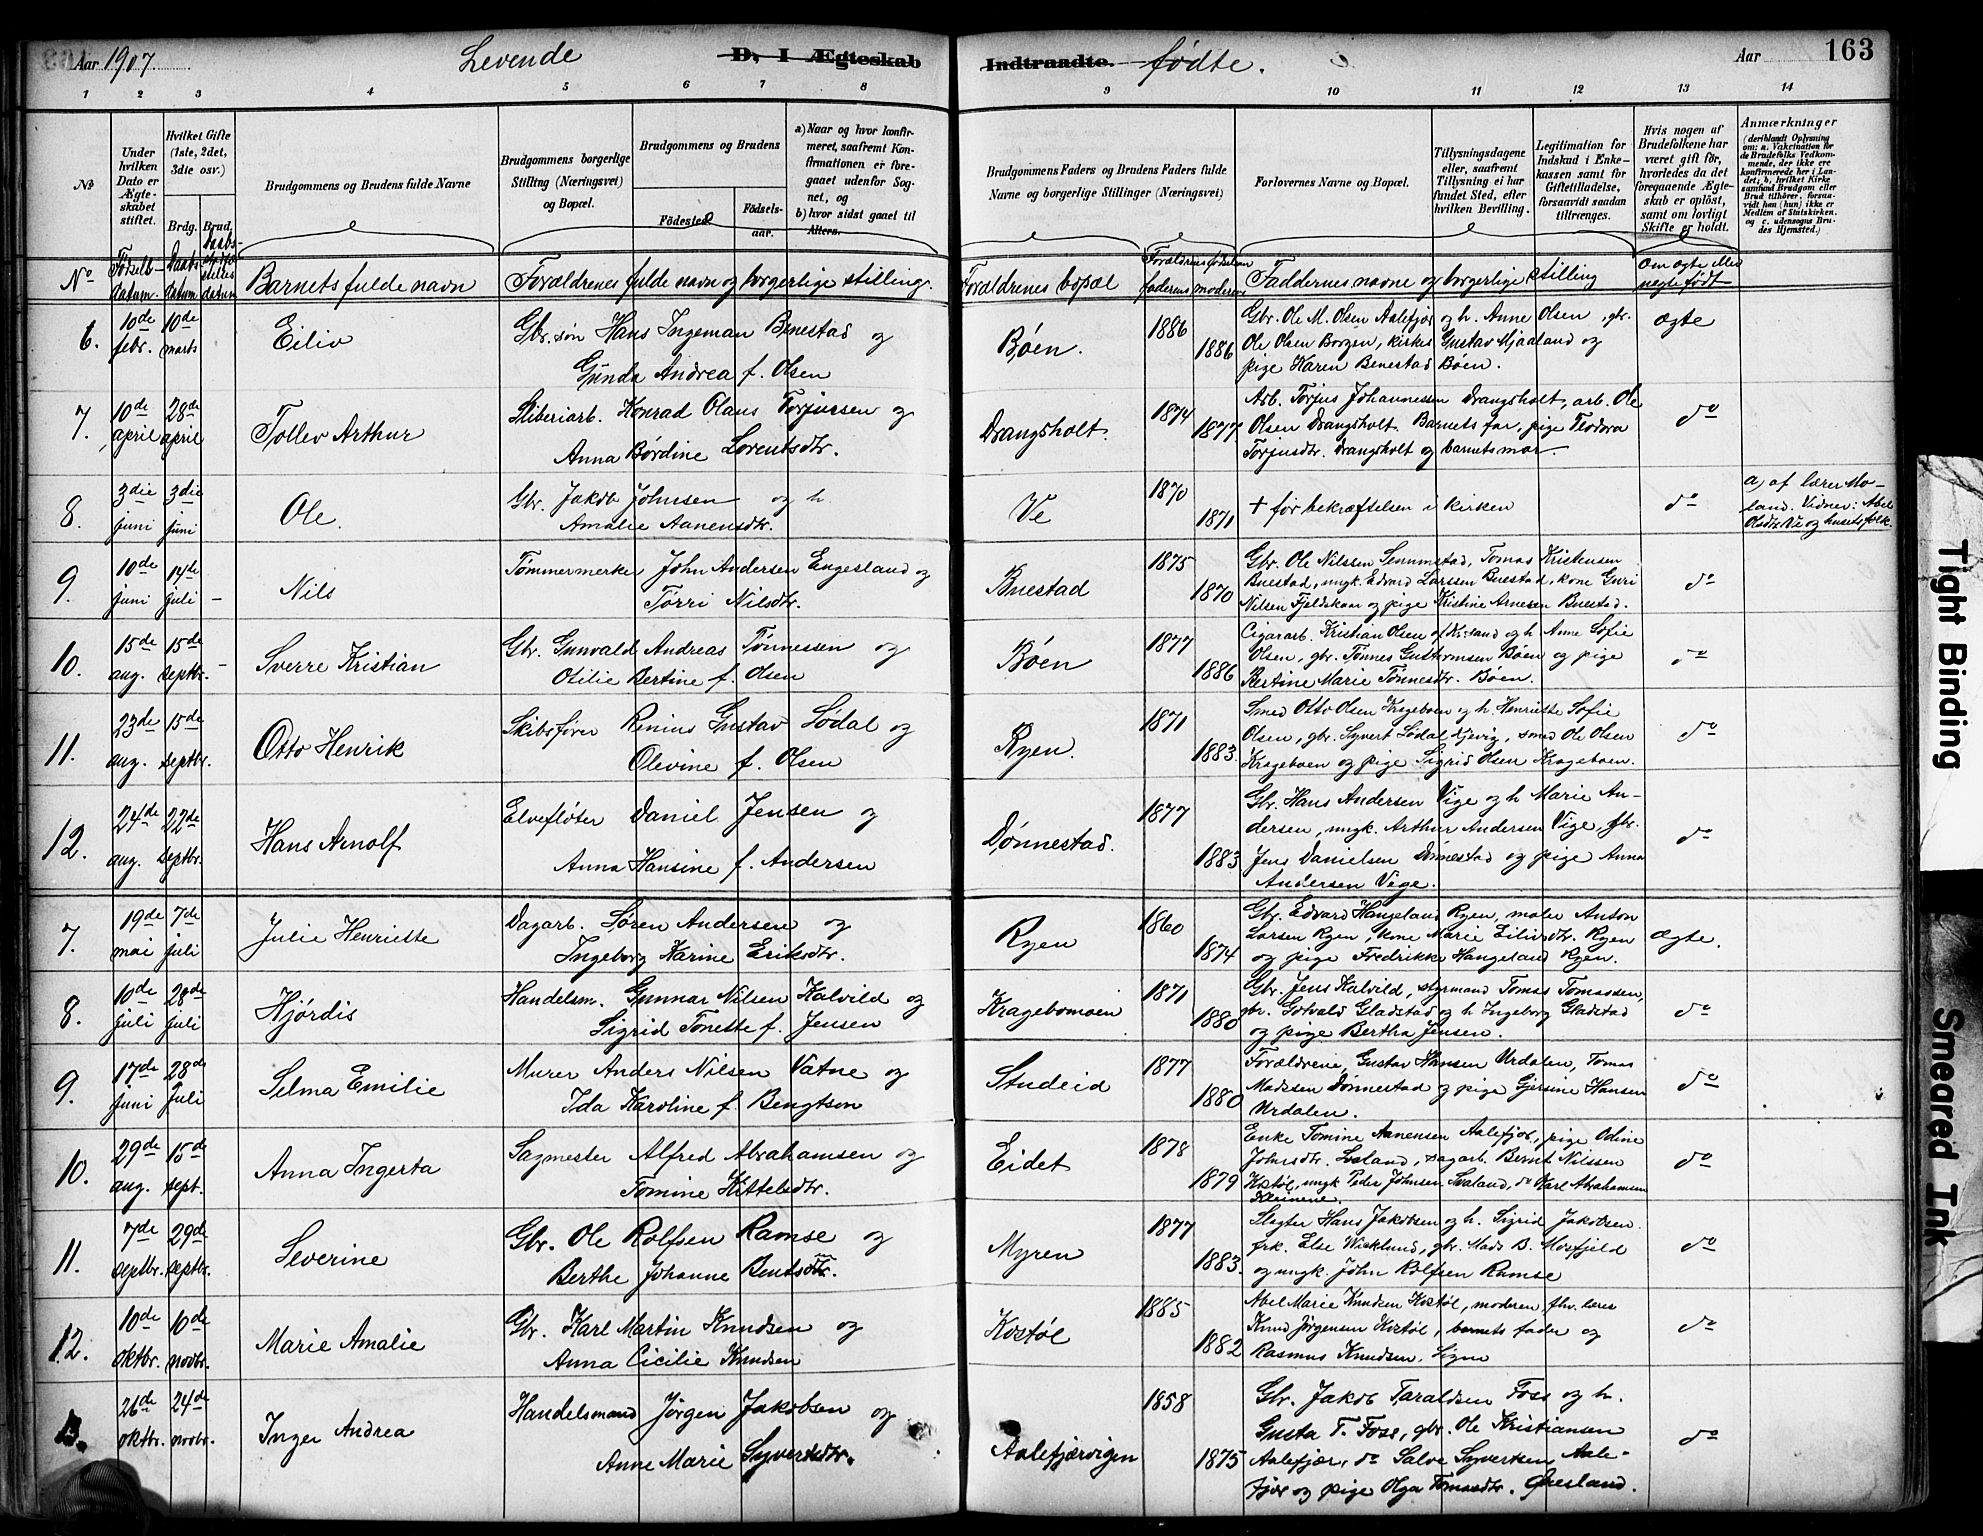 Aar 1907 Levende D, I Ægteskab Indtraadte. fødte. Aar 163
1 2 3 4 5 6 7 8 9 10 11 12 13 14
No
Under hvilken Dato er Ægteskabet stiftet.
Hvilket Gifte (1ste, 2det, 3die osv.)
Brdg. Brud.
Brudgommens og Brudens fulde Navne
Brudgommens borgerlige Stilling (Næringsvei) og Bopæl.
Brudgommens og Brudens
Fødested
Fødsels-aar.
a) Naar og hvor konfirmeret, saafremt Konfirmationen er foregaaet udenfor Sognet, og
b) hvor sidst gaaet til Alters.
Brudgommens Faders og Brudens Faders fulde Navne og borgerlige Stillinger (Næringsvei)
Forlovernes Navne og Bopæl.
Tillysningsdagene eller, saafremt Tillysning ei har fundet Sted, efter hvilken Bevilling.
Legitimation for Indskud i Enkekassen samt for Giftetilladelse, forsaavidt saadan tiltrænges.
Hvis nogen af Brudefolkene har været gift før, hvorledes da det foregaaende Ægteskab er opløst, samt om lovligt Skifte er holdt.
Anmærkninger
(deriblandt Oplysning om: a. Vakcination for de Brudefolks Vedkommende, der ikke ere konfirmerede her i Landet; b. hvilket Kirkesamfund Brudgom eller Brud tilhører, forsaavidt han (hun) ikke er Medlem af Statskirken, og c. udensogns Brudes Hjemsted.)
No Fødsels-datum. Daabs-datum Barnets fulde navn Forældrenes fulde navn og borgerlige stilling. Forældrenes bopæl faderens moderens Faddernes navne og borgerlige stilling om ægte eller uegte født
6. 10de febr. 10de marts Eiliv Gbr. søn Hans Ingeman Benestad og
Gunda Andrea f. Olsen
Bøen. 1886 1886
Gbr. Ole M. Olsen Aalefjær og h. Anne Olsen, gbr.
Ole Olsen Borgen, kirkes. Gustav Mjaaland og
pige Karen Benestad Bøen.
ægte
7. 10de april 28de april Tollev Arthur Sliberiarb. Konrad Olaus Torjussen og
Anna Børdine Lorentsdtr.
Drangsholt. 1874 1877
Arb. Torjus Johannesen Drangsholt, arb. Ole
Olsen Drangsholt. Barnets far, pige Teodora
Torjusdtr. Drangsholt og barnets mor.
do
8. 3die juni 3die juni Ole. Gbr. Jakob Johnsen og h.
Amalie Aanensdtr.
Ve 1870 1871
+ før bekræftelsen i kirken
do
a, af lærer Mo-
land. Vidner: Abel
Olsdtr. Ve og husets folk.
9. 10de juni 14de juli Nils Tømmermerker John Andersen Engesland og
Torri Nilsdtr.
Buestad 1875 1870
Gbr. Ole Nilssen Semmstad, Tomas Kristensen
Buestad, ungk. Edvard Larssen Buestad, kone Guri
Nilsen Fjeldskaar og pige Kristine Arnesen Buestad.
do
10. 15de aug. 15de septbr. Sverre Kristian Gbr. Gunvald Andreas Tønnessen og
Otilie Bertine f. Olsen
Bøen 1877 1886
Cigararb. Kristian Olsen af Kr.sand og h. Anne Sofie
Olsen, gbr. Tønnes Guttormsen Bøen og pige
Kertine Marie Tønnesdtr. Bøen.
do
11. 23de aug. 15de septbr. Otto Henrik Skibsfører Renius Gustav Lødal og
Olevine f. Olsen
Ryen. 1871 1883.
Smed Otto Olsen Krageboen og h. Henriette Sofie
Olsen, gbr. Syvert Lødal, smed Ole Olsen
Krageboen og pige Sigrid Olsen Krageboen.
do
12. 24de aug. 22de septbr. Hans Arnolf Elvefløter Daniel Jensen og
Anna Hansine f. Andersen
Dønnestad. 1877 1883
Gbr. Hans Andersen Vige og h Marie An-
dersen, ungk. Arthur Andersen Vige, gbr.
Jens Danielsen Dønnestad og pige Anna
Andersen Vige.
do
7. 19de mai 7de juli Julie Henriette Dagarb. Søren Andersen og
Ingeborg Karine Eriksdtr.
Ryen 1860 1874
Gbr. Edvard Hangeland Ryen, maler Anton
Larsen Ryen, kone Marie Eilivsdtr. Ryen
og pige Fredrikke Hangeland Ryen.
ægte.
8. 10de juli 28de juli Hjørdis Handelsm. Gunnar Nilsen Kalvild og
Sigrid Tonette f. Jensen
Kragebomoen 1871 1880
Gbr. Jens Kalvild, styrmand Tomas Tomassen,
gbr. Gotvald Gladstad og h Ingeborg Gladstad
og pige Bertha Jensen.
do
9. 17de juni 28de juli Selma Emilie Murer Anders Nilsen Vatne og
Ida Karoline f. Bengtson
Studeid 1877 1880
Forældrene, Gustav Hansen Urdalen, Tomas
Madsen Dønnestad og pige Gjersine Hansen
Urdalen.
do
10. 29de aug. 15de sept. Anna Ingerta Sagmester Alfred Abrahamsen og
Tomine Kittelsdtr.
Eidet 1878 1879
Enke Tomine Aanensen Aalefjær, pige Odine
Johnsdtr. Svaland, sagarb. Bernt Nilssen
Kostøl, ungk Peder Johnsen Svaland, do Karl Abrahamsen
Kleivene.
do
11. 7de septbr. 29de septbr. Severine Gbr. Ole Rolfsen Ramse og
Berthe Johanne Bentsdtr.
Myren 1877 1883.
Slagter Hans Jakobsen og h. Sigrid Jakobsen.
frk. Else Wicklund, gbr. Mads B. Mosfjeld
og ungk. John Rolfsen Ramse
do
12. 10de oktbr. 10de novbr. Marie Amalie Gbr. Karl Martin Knudsen og
Anna Cicilie Knudsen
Kostøl 1885 1882
Abel Marie Knudsen Kostøl, moderen, fhv. lærer
Knud Jørgensen Kostøl, barnets fader og
Rasmus Knudsen, Signe
do
13. 26de oktbr. 24de novbr. Inger Andrea Handelsmand Jørgen Jakobsen og
Anne Marie Syvertsdtr.
Aalefjærvigen 1858 1875
Gbr. Jakob Taraldsen Foss og h.
Gusta T. Foss, gbr. Ole Kristiansen
Aalefjær, do Salve Syvertsen Aale-
fjær og pige Olga Tomasdtr. Øvesland.
do
Tight Binding
Smeared Ink